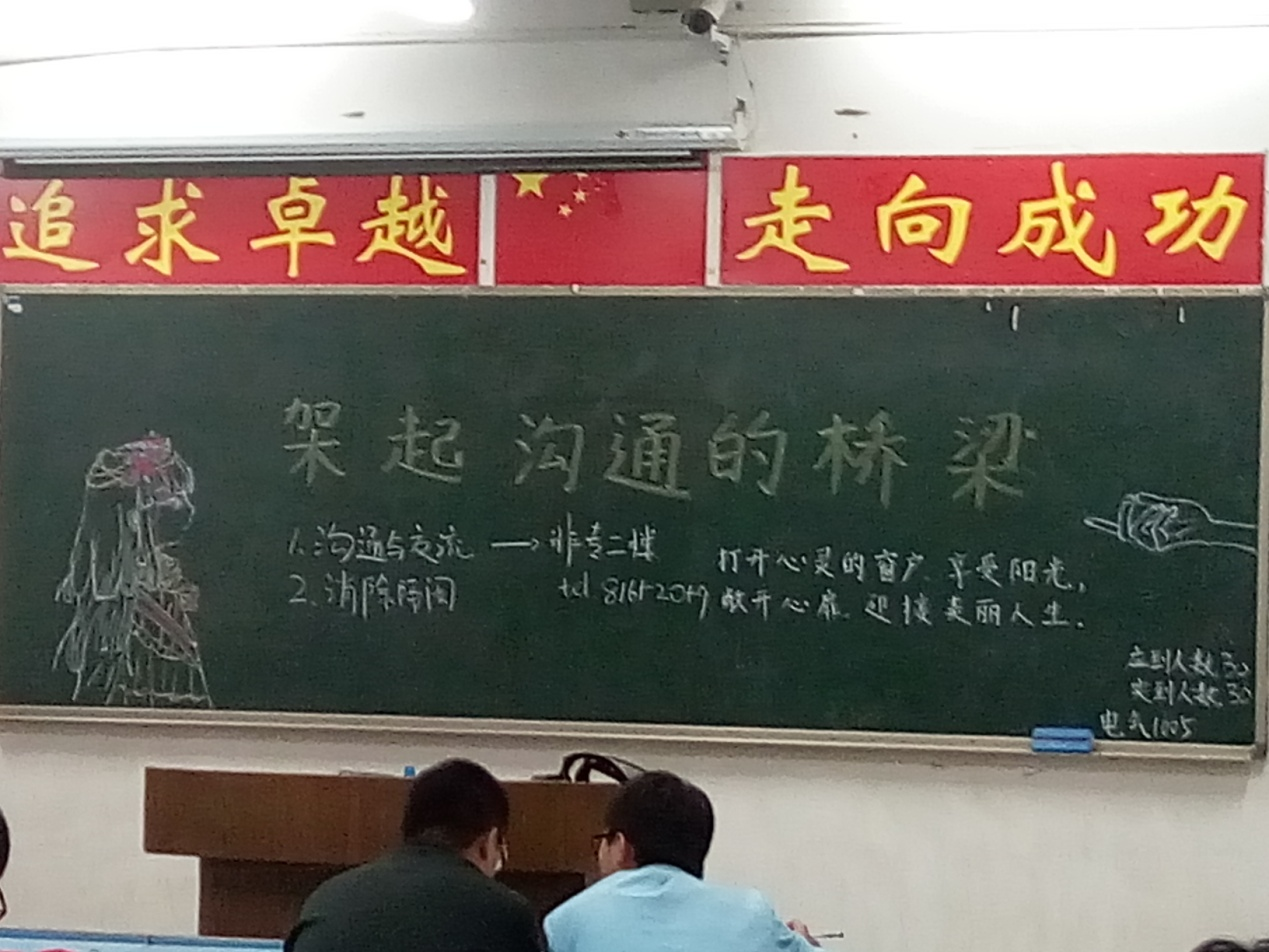 追求卓越
走向成功
架起沟通的桥梁
1.沟通与交流→非专二楼
2.消除隔阂
tel 81652019
打开心灵的窗户,享受阳光,
敞开心扉,迎接美丽人生.
应到人数30
实到人数30
电气1005